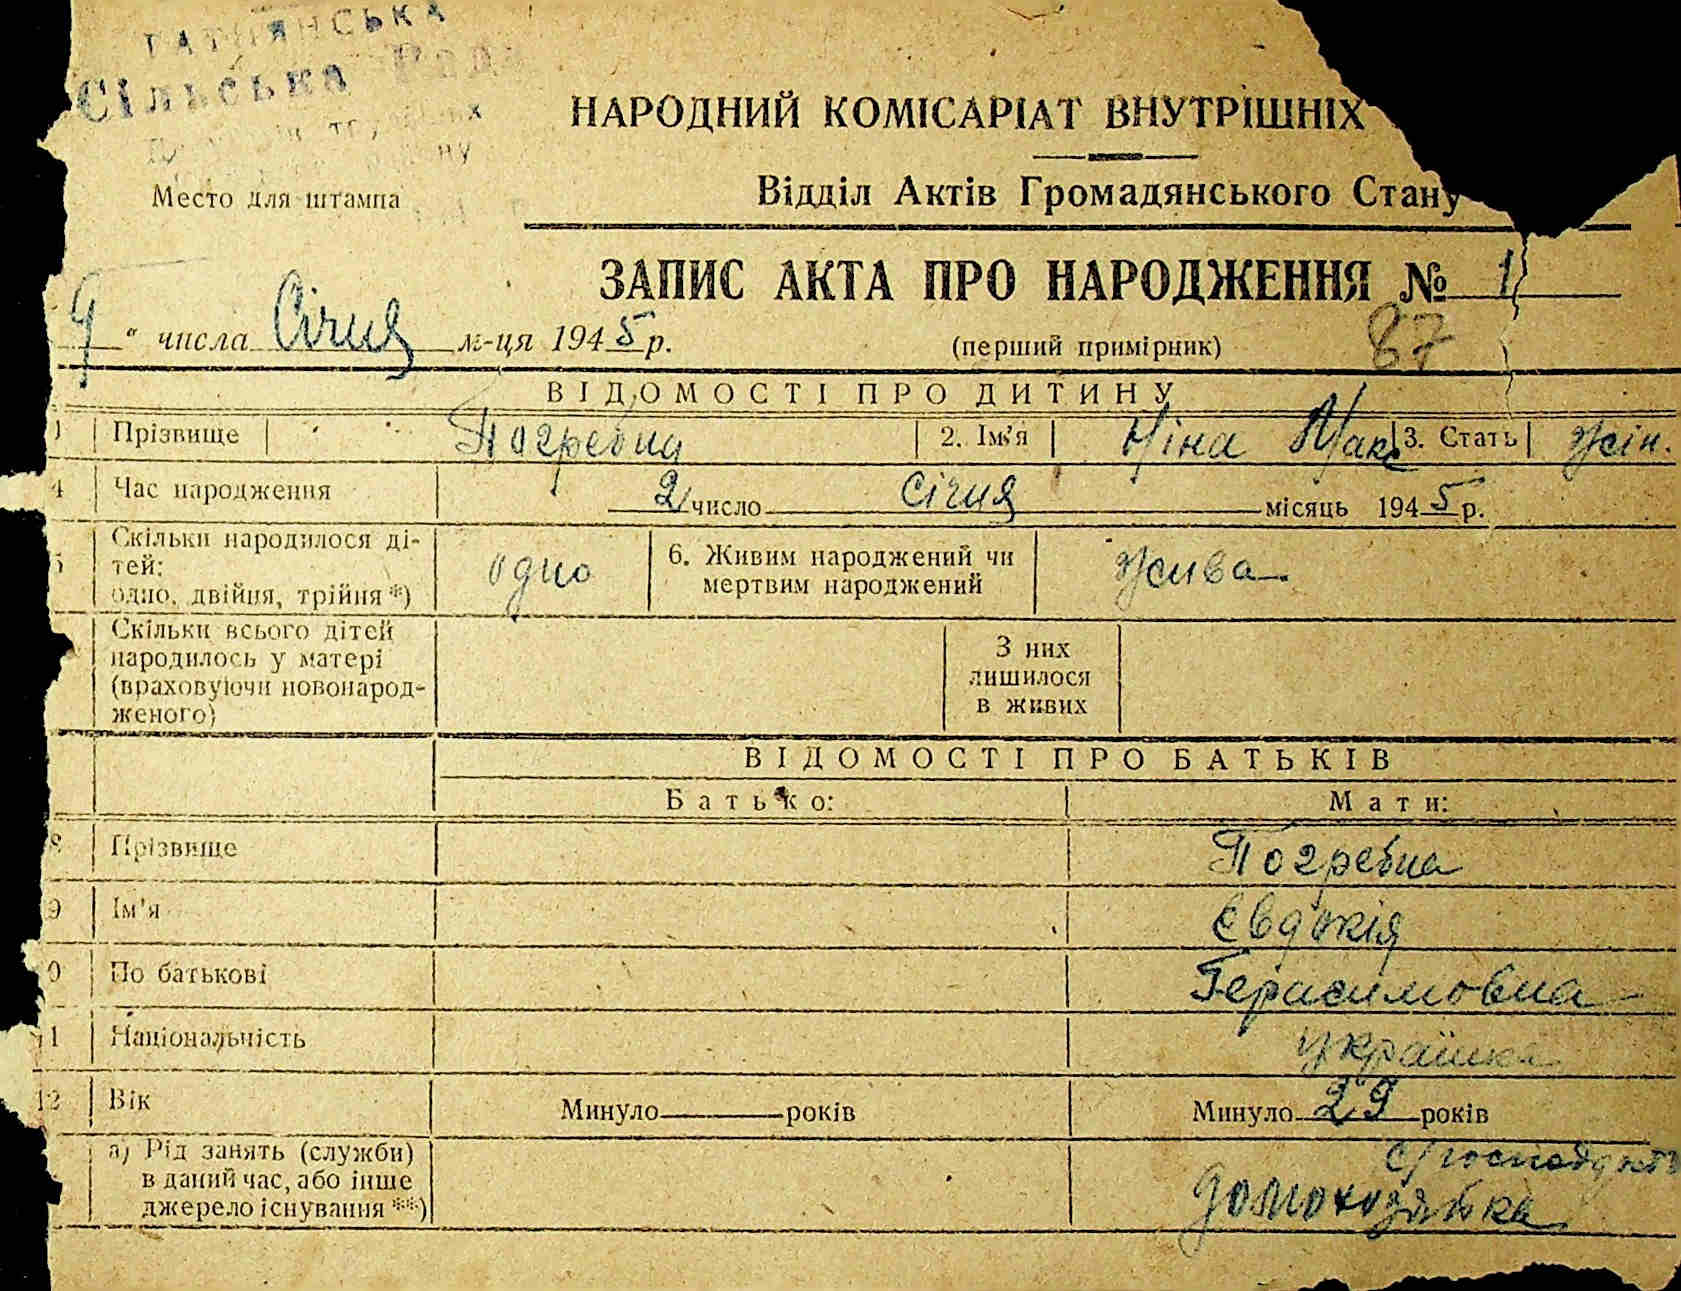 ГАТНЯНСЬКА
Сільська Рада
Место для штампа
НАРОДНИЙ КОМІСАРІАТ ВНУТРІШНІХ
Відділ Актів Громадянського Стану
ЗАПИС АКТА ПРО НАРОДЖЕННЯ № 1
9 " числа Січня м-ця 1945 р.
(перший примірник) 87
ВІДОМОСТІ ПРО ДИТИНУ
Прізвище Погребна 2. Ім'я Ніна Макс 3. Стать жін.
4 Час народження 2 число Січня місяць 1945 р.
Скільки народилося ді-
тей:
одно, двійня, трійня *) одно 6. Живим народжений чи
мертвим народжений жива
Скільки всього дітей
народилось у матері
(враховуючи новонарод-
женого)
З них
лишилося
в живих
ВІДОМОСТІ ПРО БАТЬКІВ
Батько: Мати:
8 Прізвище Погребна
9 Ім'я Євдокія
0 По батькові Герасимовна
1 Національність українка
12 Вік Минуло років Минуло 29 років
а) Рід занять (службы)
в даний час, або інше
джерело існування **)
домохозяйка